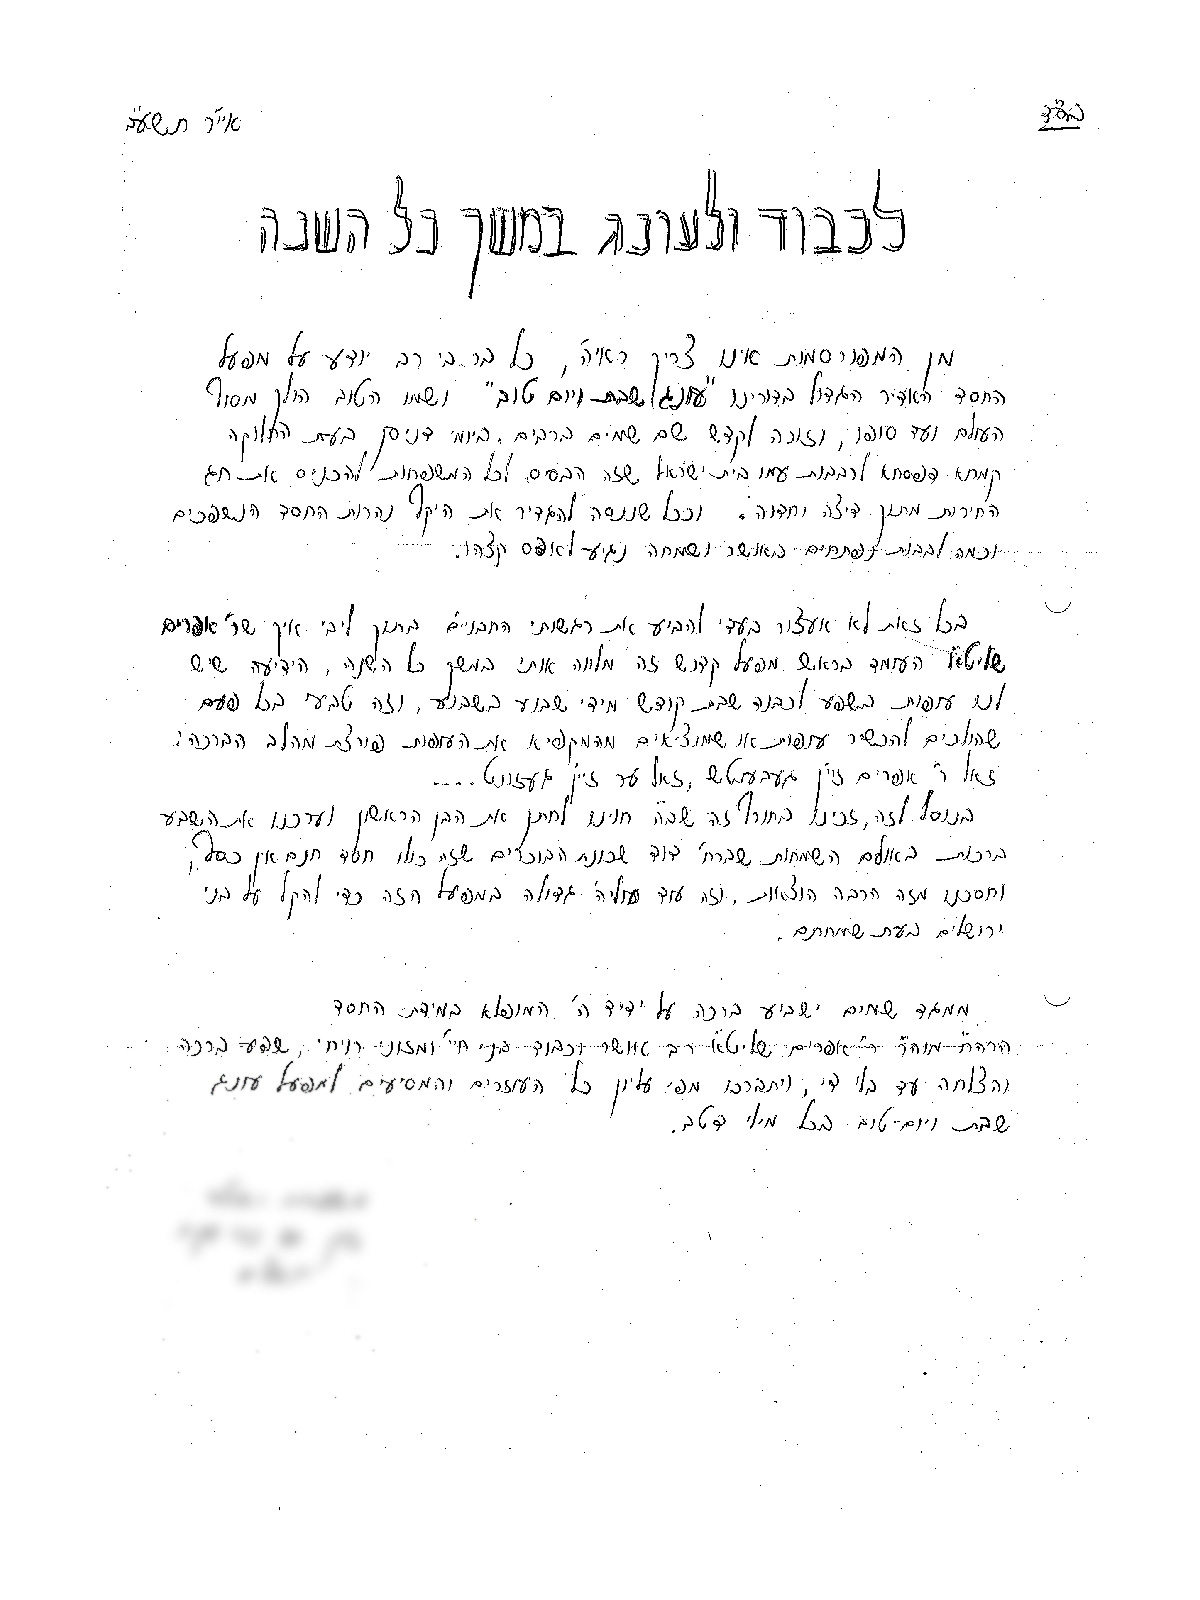 בס"ד
אי"ר תשע"ב
לכבוד ולעונג במשך כל השנה
מן המפורסמות אינו צריך ראיה', כל בר בי רב יודע על מפעל
החסד האדיר הגדול בדורינו "עונג שבת ויום טוב" ושמו הטוב הולך מסוף
העולם ועד סופו, וזוכה לקדש שם שמים ברבים, ביומי דניסן בעת החלוקה
קמחא דפסחא לרבבות עמו בית ישראל שזה הבסיס לכל המשפחות להכניס את חג
החירות מתוך דיצה וחדוה. וככל שננסה להגדיר את היקף נהרות החסד הנשפכים
וכמה לבבות נפתחים באושר ושמחה נגיע לאפס קצהו.
בכל זאת לא אעצור בעדי להביע את רגשותי החבויים בתוך ליבי איך שר' אפרים
שליט"א העומד בראש מפעל קדוש זה מלווה אותי במשך כל השנה, הידיעה שיש
לנו עופות בשפע לכבוד שבת קודש מידי שבוע בשבוע, וזה טבעי בכל פעם
שהולכים להכשיר עופות או שמוציאים מהמקפיא את העופות פורצת מהלב הברכה:
זאל ר' אפרים זיין געבענטשט, זאל ער זיין געזונט....
בנוסף לזה, זכינו בחורף זה שב"ה חיתנו לחתן את הבן הראשון וערכנו את השבע
ברכות באולם השמחות שברח' דוד שכונת הבוכרים שזה כולו חסד חנם אין כסף,
וחסכנו מזה הרבה הוצאות, וזה עוד עוליה גדולה במפעל הזה כדי להקל על בני
ירושלים בעת שמחתם.
ממגד שמים ישביע ברכה על ידיד ה' המופלא במידת החסד
הרה"ח מוה"ר ר' אפרים שליט"א רב אושר וכבוד בני חיי ומזוני רויחי, שפע ברכה
והצלחה עד בלי די, ויתברכו מפי עליון כל העוזרים והמסיעים למפעל עונג
שבת ויום-טוב בכל מילי דטב.